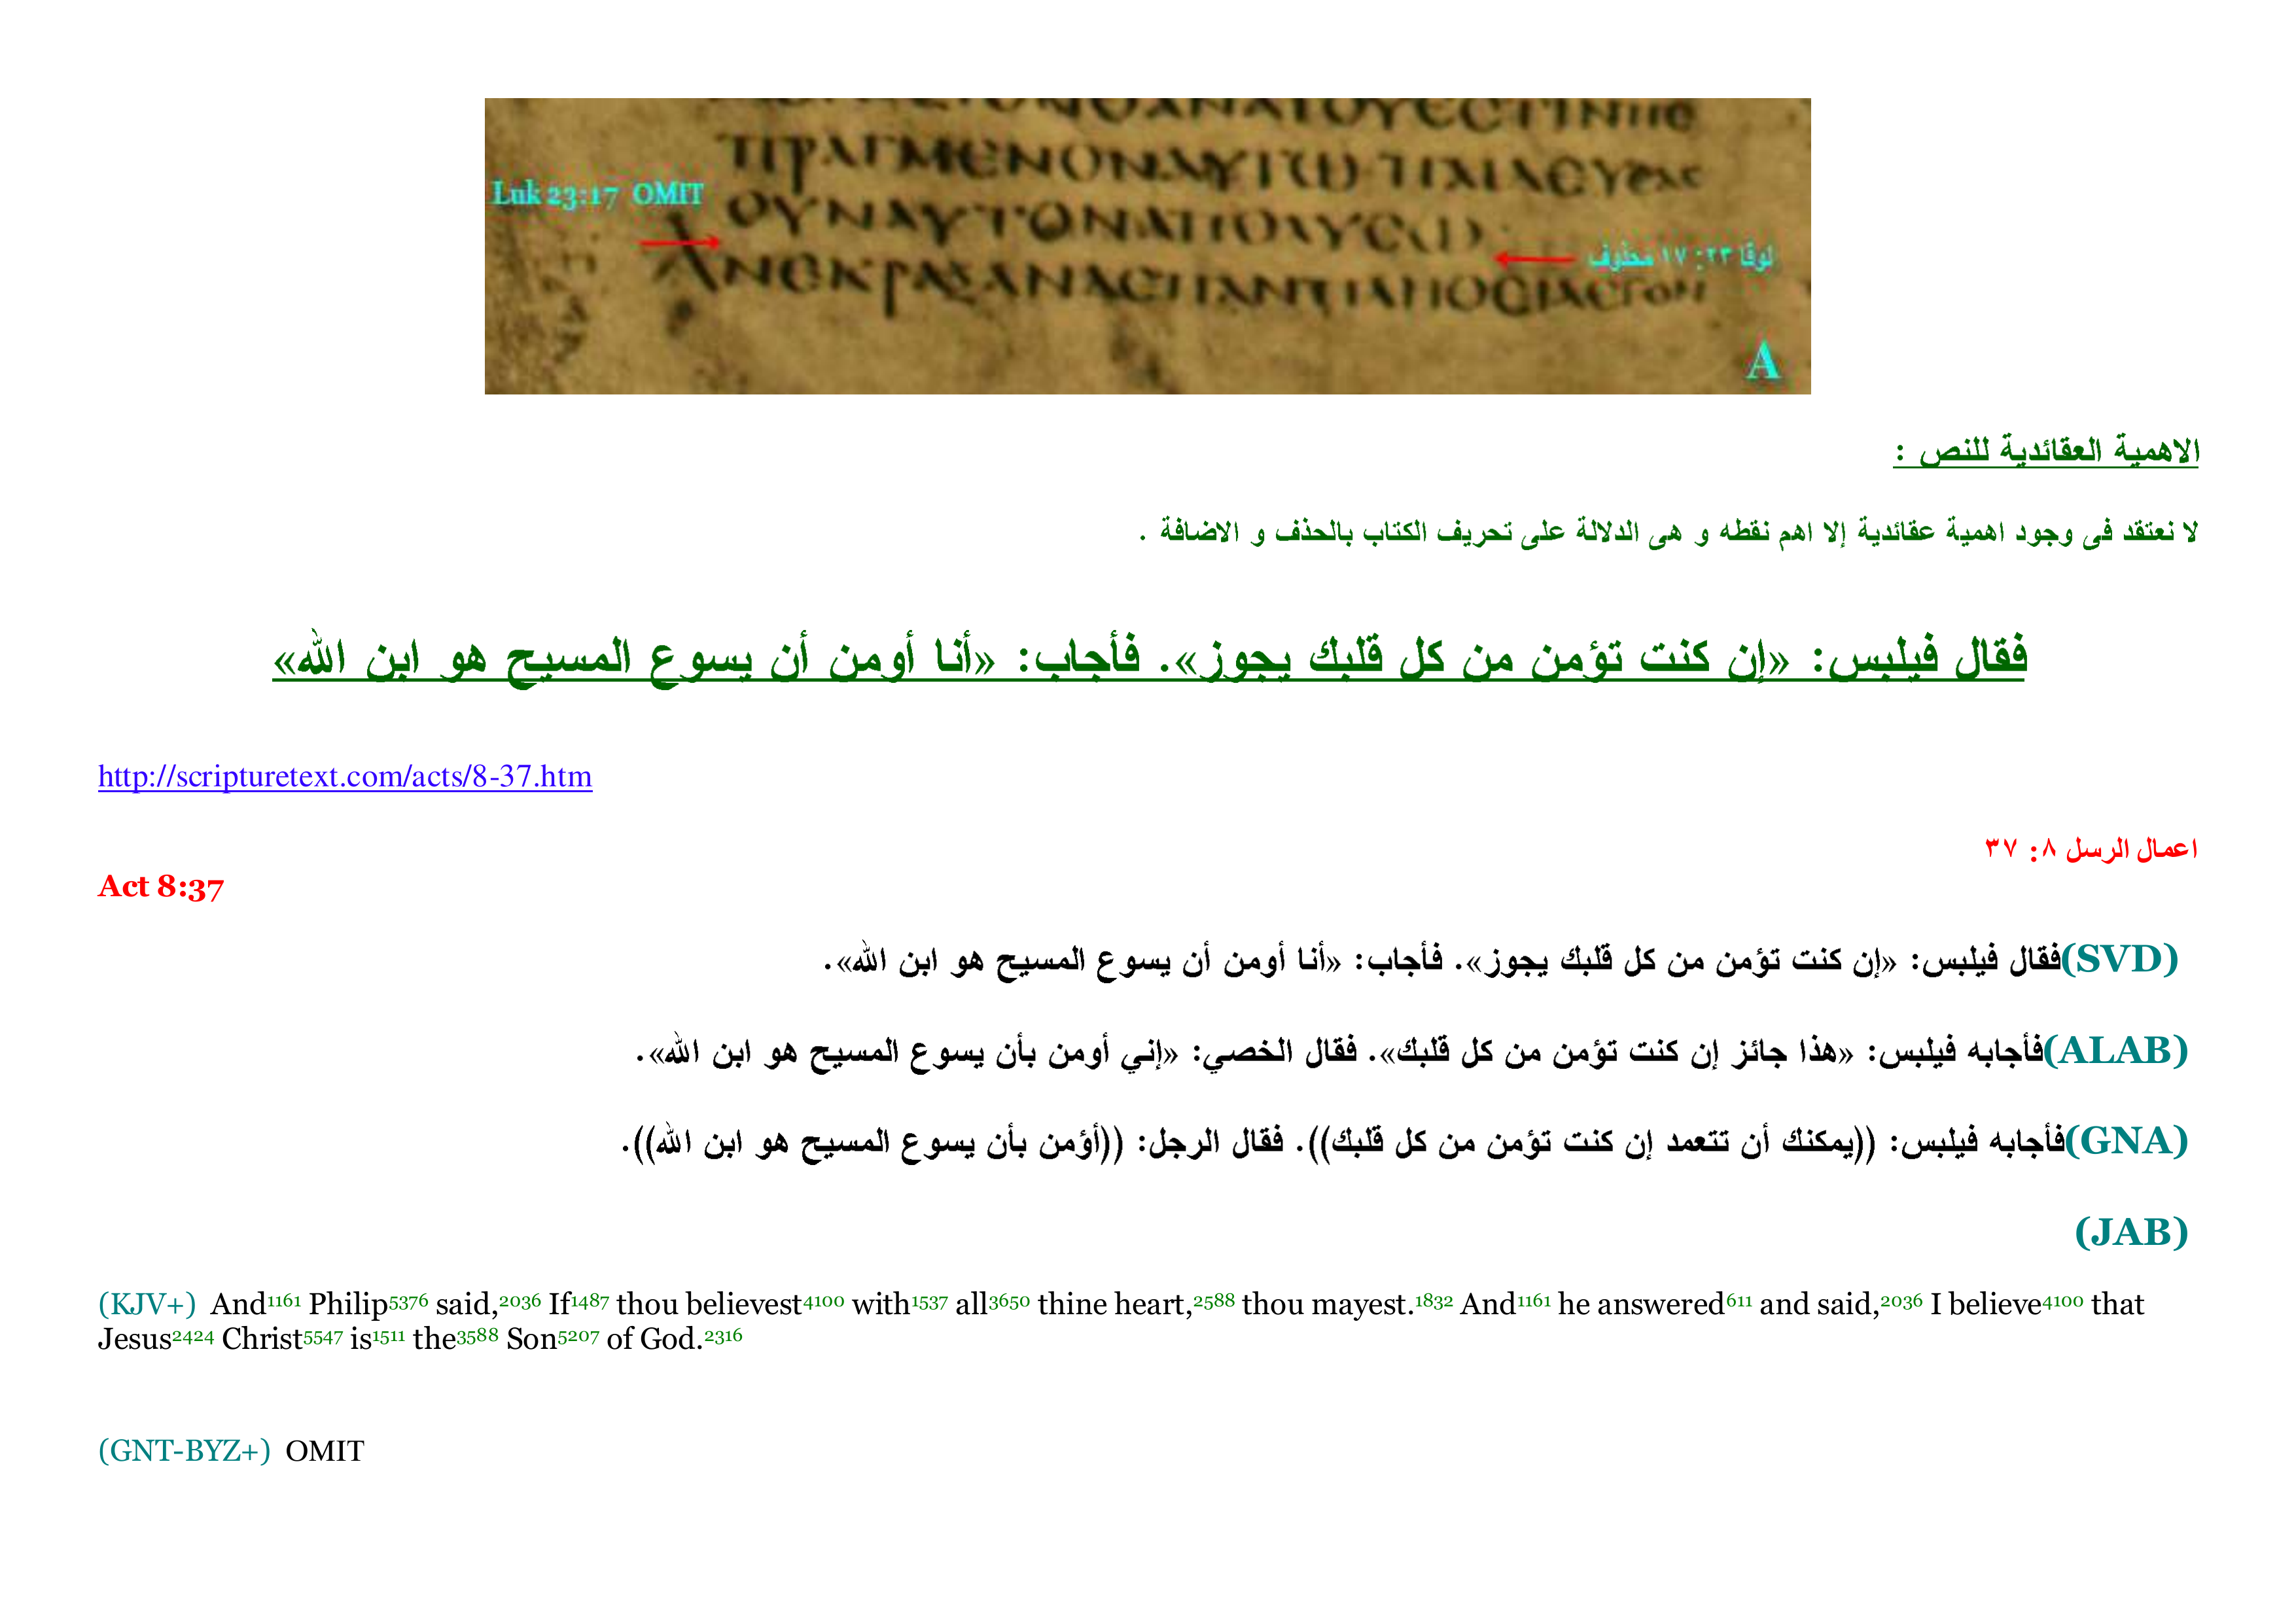 Luk 23:17 OMIT
ΟΥΝΑΥΤΟΝΑΠΟΛΥCΩ
لوقا ٢٣: ١٧ محذوف
A
الاهمية العقائدية للنص :
لا نعتقد فى وجود اهمية عقائدية إلا اهم نقطه و هى الدلالة على تحريف الكتاب بالحذف و الاضافة .
فقال فيلبس: «إن كنت تؤمن من كل قلبك يجوز». فأجاب: «أنا أومن أن يسوع المسيح هو ابن الله»
http://scripturetext.com/acts/8-37.htm
اعمال الرسل ٨: ٣٧
Act 8:37
(SVD)فقال فيلبس: «إن كنت تؤمن من كل قلبك يجوز». فأجاب: «أنا أومن أن يسوع المسيح هو ابن الله».
(ALAB)فأجابه فيلبس: «هذا جائز إن كنت تؤمن من كل قلبك». فقال الخصي: «إني أومن بأن يسوع المسيح هو ابن الله».
(GNA)فأجابه فيلبس: ((يمكنك أن تتعمد إن كنت تؤمن من كل قلبك)). فقال الرجل: ((أؤمن بأن يسوع المسيح هو ابن الله)).
(JAB)
(KJV+) And1161 Philip5376 said,2036 If1487 thou believest4100 with1537 all3650 thine heart,2588 thou mayest.1832 And1161 he answered611 and said,2036 I believe4100 that
Jesus2424 Christ5547 is1511 the3588 Son5207 of God.2316
(GNT-BYZ+) OMIT